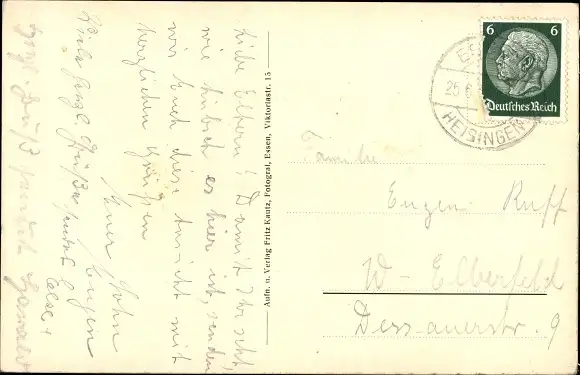 Liebe Eltern! Damit Ihr seht,
wie hübsch es hier ist, senden
wir Euch diese Ansicht mit
herzlichen Grüßen
Euer Sohn
Eugen
Viele Grüße sendet
Herzl. Gruß sendet
Aufn. u. Verlag Fritz Kautz, Fotograf, Essen, Viktoriastr. 15
6 6
Deutsches Reich
ES
25.6
HEISINGEN
Familie
Eugen Ruff
W - Elberfeld
Dessauerstr. 9